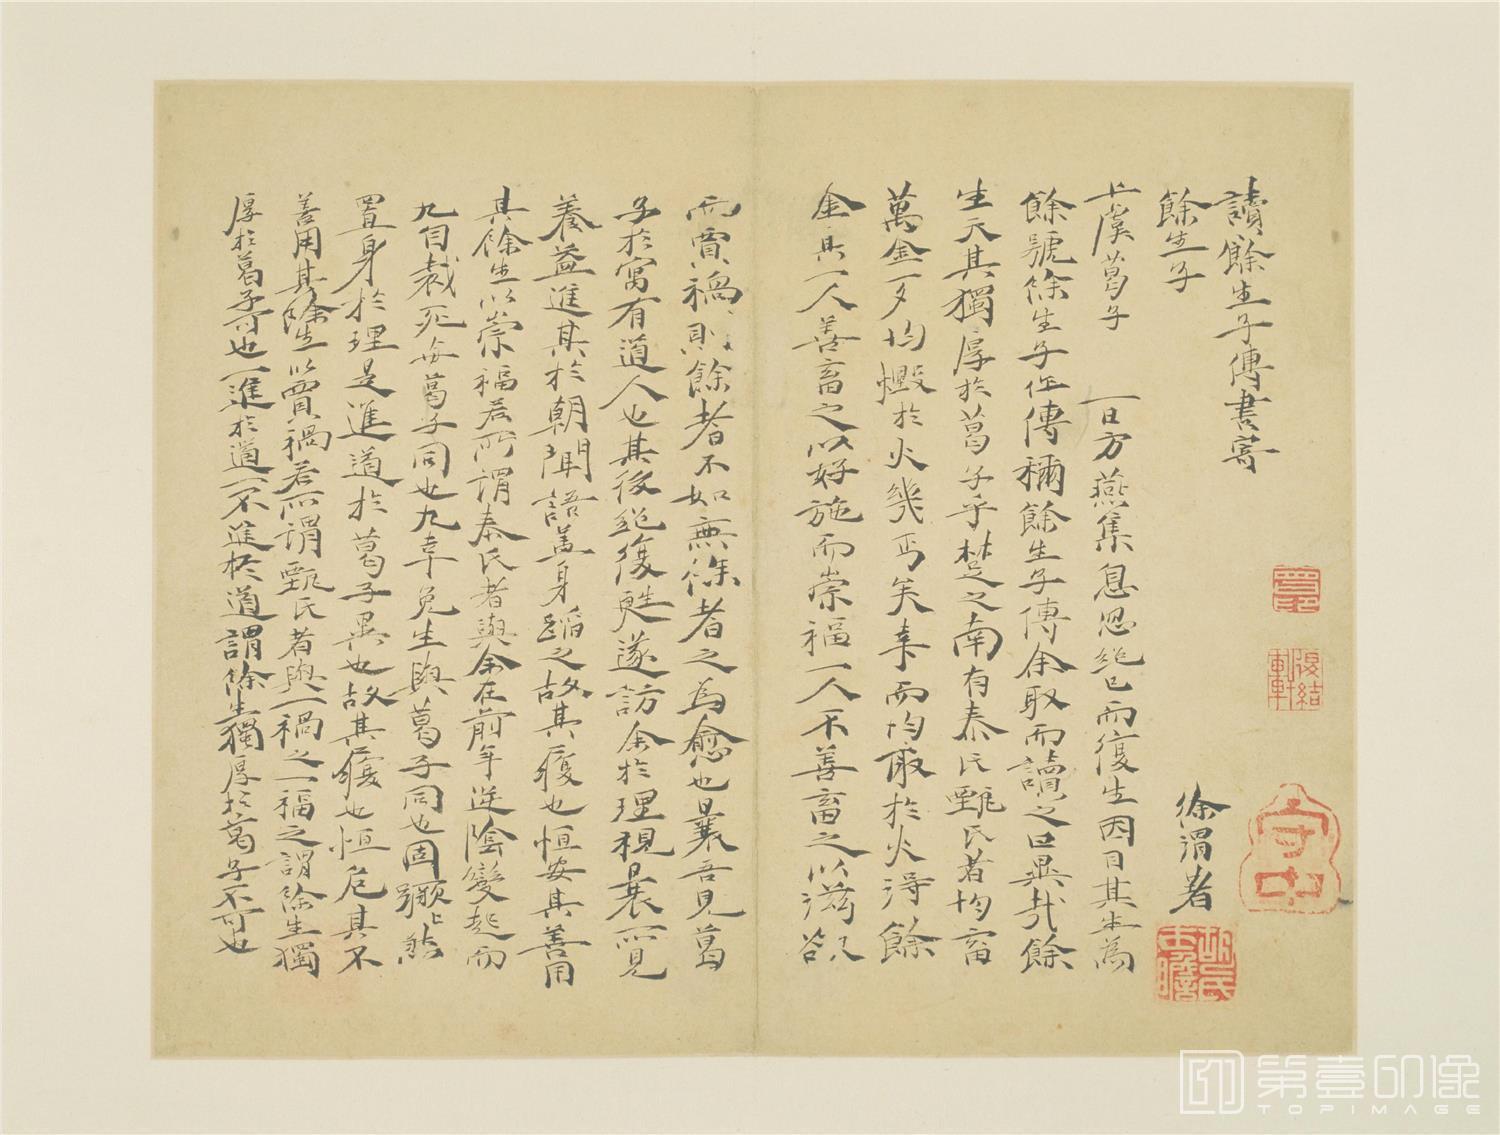 讀餘生子傳書寄
餘生子
徐渭著
上虞葛子 一日方燕集息忽絕已而復生因目其生為
餘號餘生子作傳稱餘生子傳余取而讀之曰異哉餘
生天其獨厚於葛子乎楚之南有秦氏甄氏者均畜
萬金一夕均燬於火幾丐矣未幾而均取於火得餘
金焉一人善畜之以好施而崇福一人不善畜之以滋欲
而賈禍則餘者不如無餘者之為愈也曩吾見葛
子於寓有道人也其後絕復甦遂訪余於理視曩所見
養益進其於朝聞語蓋身蹈之故其復也恒安其善用
其餘生以崇福若所謂秦氏者與余在前年逆陰變起而
九自裁死與葛子同也九幸免生與葛子同也固
置身於理是進道於葛子異也故其復也恒危其不
善用其餘生以賈禍若所謂甄氏者與一禍之一福之謂餘生獨
厚於葛子可也一進於道一不進於道謂餘生獨厚於葛子不可也
守中
第壹印像
TOPIMAGE